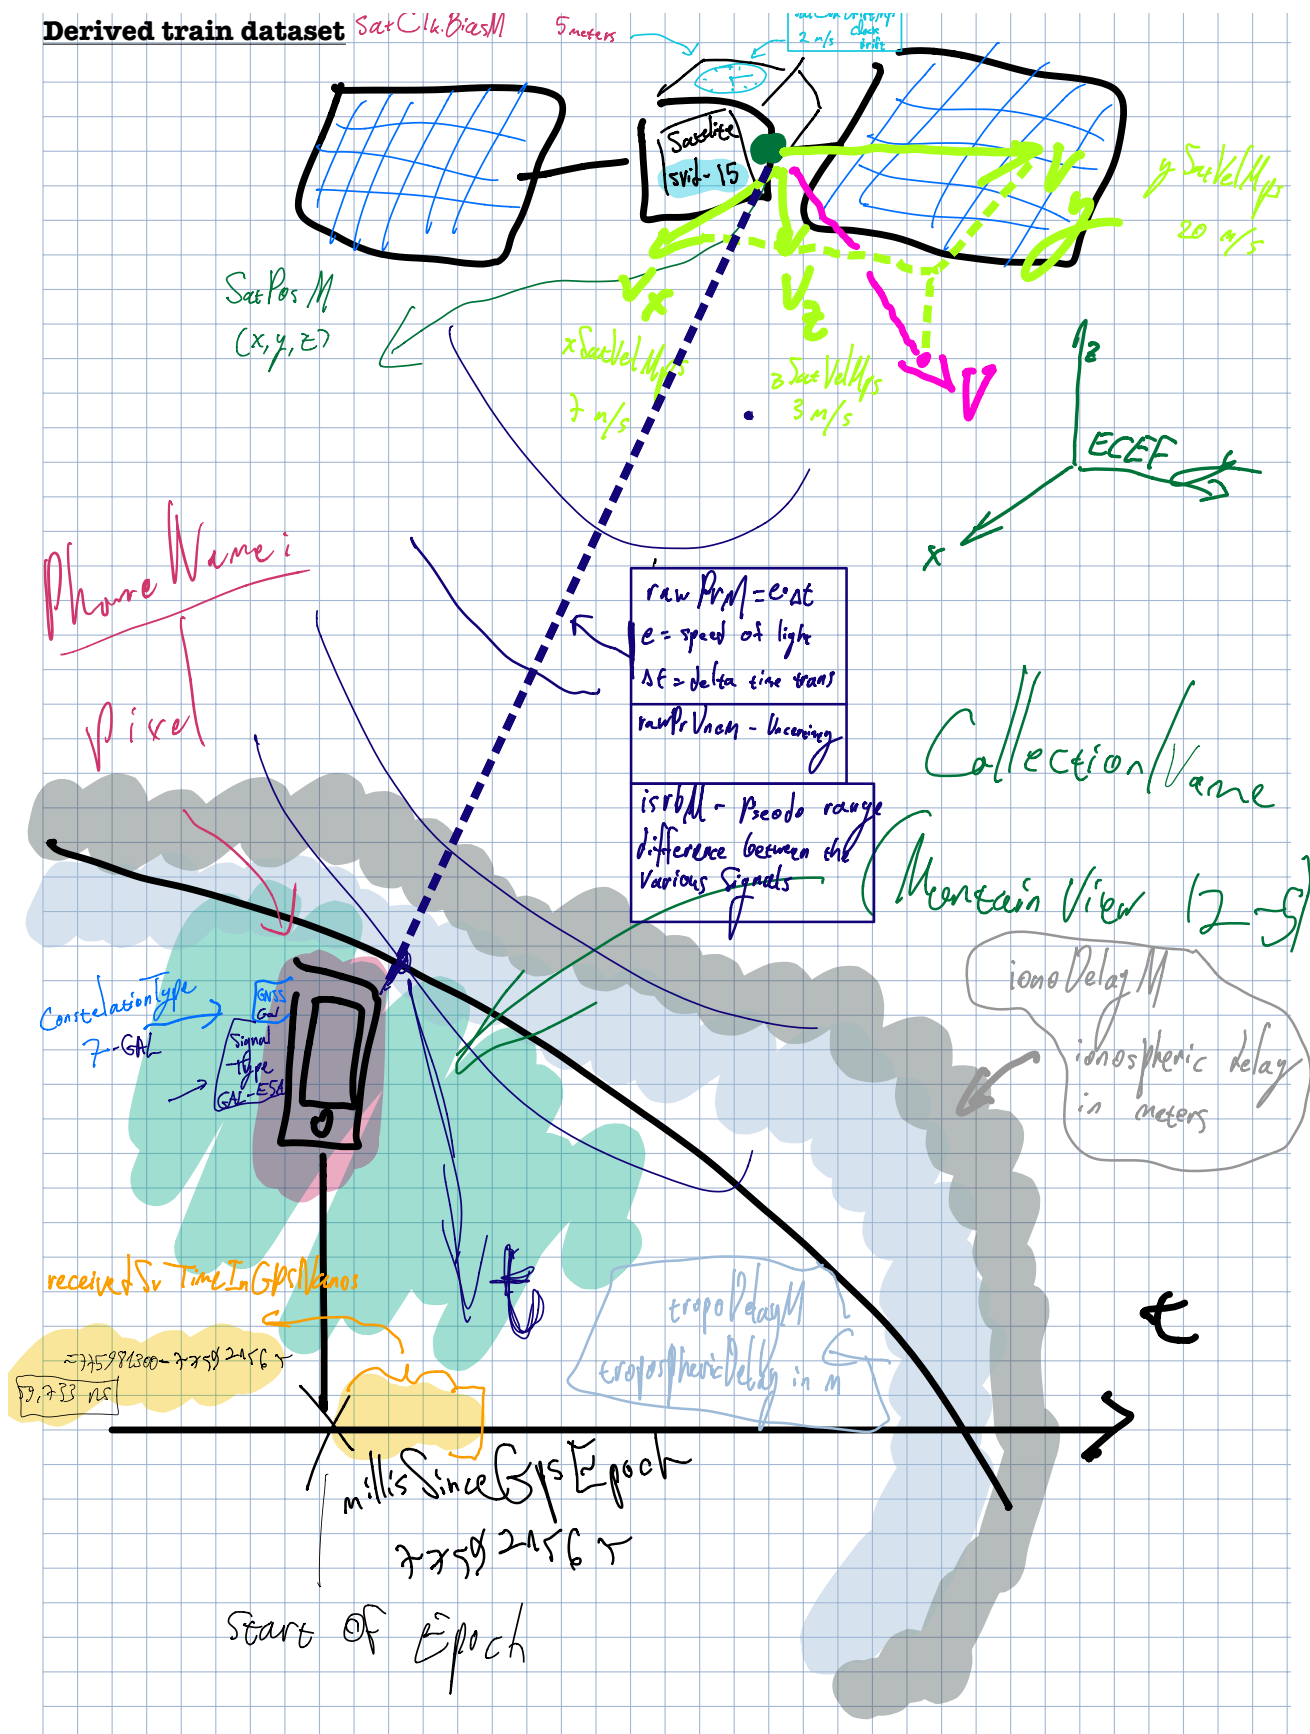 Derived train dataset
SatClk.BiasM 5 meters
2 m/s
clock
drift
Satelite
svid-15
Vy
ySatVelMps
20 m/s
SatPosM
(x,y,z)
Vx
Vz
xSatVelMps
7 m/s
zSatVelMps
3 m/s
V
z
ECEF
x
PhoneName:
Pixel
rawPrM = c·Δt
c = speed of light
Δt = delta time trans
rawPrUncM -
isrbM - Pseodo range
difference between the
Various Signals
CollectionName
Mountain View
ionoDelayM
ionospheric delay
in meters
ConstelationType
7-GAL
GNSS
Gal
Signal
Type
GAL-E5A
receivedSvTimeInGpsNanos
t
tropoDelayM
troposphericDelay in m
t
59,733 ns
millisSinceGpsEpoch
Start Of Epoch